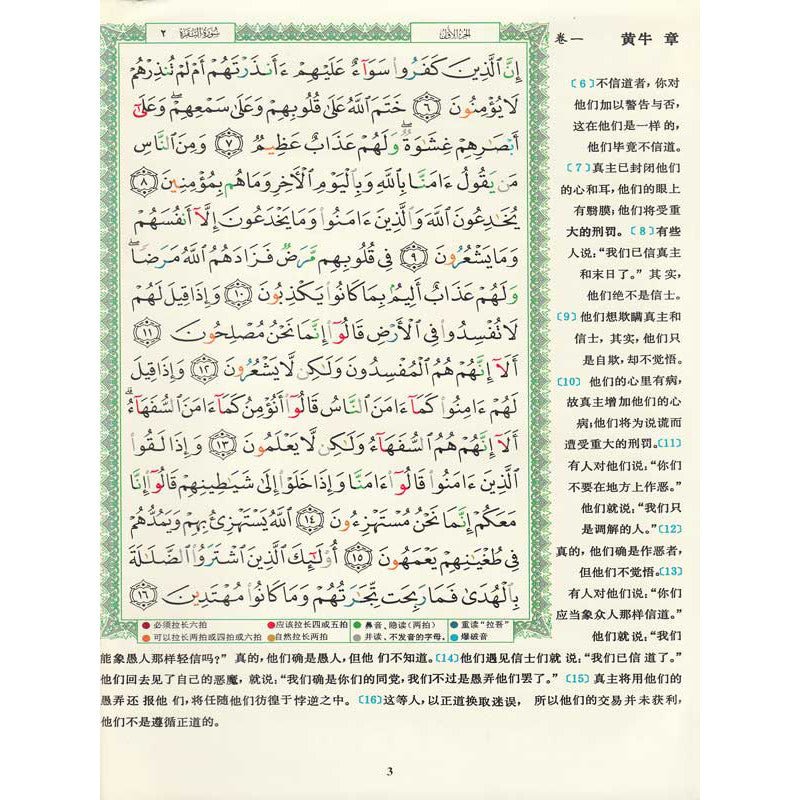 سُورَةُ البَقَرَةِ ٢
الجزء الأول
卷一 黄牛 章
إِنَّ ٱلَّذِينَ كَفَرُوا۟ سَوَآءٌ عَلَيْهِمْ ءَأَنذَرْتَهُمْ أَمْ لَمْ تُنذِرْهُمْ
لَا يُؤْمِنُونَ ٦ خَتَمَ ٱللَّهُ عَلَىٰ قُلُوبِهِمْ وَعَلَىٰ سَمْعِهِمْ ۖ وَعَلَىٰٓ
أَبْصَٰرِهِمْ غِشَٰوَةٌ ۖ وَلَهُمْ عَذَابٌ عَظِيمٌ ٧ وَمِنَ ٱلنَّاسِ
مَن يَقُولُ ءَامَنَّا بِٱللَّهِ وَبِٱلْيَوْمِ ٱلْءَاخِرِ وَمَا هُم بِمُؤْمِنِينَ ٨
يُخَٰدِعُونَ ٱللَّهَ وَٱلَّذِينَ ءَامَنُوا۟ وَمَا يَخْدَعُونَ إِلَّآ أَنفُسَهُمْ
وَمَا يَشْعُرُونَ ٩ فِى قُلُوبِهِم مَّرَضٌ فَزَادَهُمُ ٱللَّهُ مَرَضًا ۖ
وَلَهُمْ عَذَابٌ أَلِيمٌۢ بِمَا كَانُوا۟ يَكْذِبُونَ ١٠ وَإِذَا قِيلَ لَهُمْ
لَا تُفْسِدُوا۟ فِى ٱلْأَرْضِ قَالُوٓا۟ إِنَّمَا نَحْنُ مُصْلِحُونَ ١١
أَلَآ إِنَّهُمْ هُمُ ٱلْمُفْسِدُونَ وَلَٰكِن لَّا يَشْعُرُونَ ١٢ وَإِذَا قِيلَ
لَهُمْ ءَامِنُوا۟ كَمَآ ءَامَنَ ٱلنَّاسُ قَالُوٓا۟ أَنُؤْمِنُ كَمَآ ءَامَنَ ٱلسُّفَهَآءُ ۗ
أَلَآ إِنَّهُمْ هُمُ ٱلسُّفَهَآءُ وَلَٰكِن لَّا يَعْلَمُونَ ١٣ وَإِذَا لَقُوا۟
ٱلَّذِينَ ءَامَنُوا۟ قَالُوٓا۟ ءَامَنَّا وَإِذَا خَلَوْا۟ إِلَىٰ شَيَٰطِينِهِمْ قَالُوٓا۟ إِنَّا
مَعَكُمْ إِنَّمَا نَحْنُ مُسْتَهْزِءُونَ ١٤ ٱللَّهُ يَسْتَهْزِئُ بِهِمْ وَيَمُدُّهُمْ
فِى طُغْيَٰنِهِمْ يَعْمَهُونَ ١٥ أُو۟لَٰٓئِكَ ٱلَّذِينَ ٱشْتَرَوُا۟ ٱلضَّلَٰلَةَ
بِٱلْهُدَىٰ فَمَا رَبِحَت تِّجَٰرَتُهُمْ وَمَا كَانُوا۟ مُهْتَدِينَ ١٦
必须拉长六拍 应该拉长四或五拍 鼻音、隐读(两拍) 重读“拉吾”
可以拉长两拍或四拍或六拍 自然拉长两拍 并读、不发音的字母。 爆破音
〔6〕不信道者，你对
他们加以警告与否，
这在他们是一样的，
他们毕竟不信道。
〔7〕真主已封闭他们
的心和耳，他们的眼上
有翳膜；他们将受重
大的刑罚。〔8〕有些
人说：“我们已信真主
和末日了。”其实，
他们绝不是信士。
〔9〕他们想欺瞒真主和
信士，其实，他们只
是自欺，却不觉悟。
〔10〕他们的心里有病，
故真主增加他们的心
病；他们将为说谎而
遭受重大的刑罚。〔11〕
有人对他们说：“你们
不要在地方上作恶。”
他们就说：“我们只
是调解的人。”〔12〕
真的，他们确是作恶者，
但他们不觉悟。〔13〕
有人对他们说：“你们
应当象众人那样信道。”
他们就说：“我们
能象愚人那样轻信吗？”真的，他们确是愚人，但他们不知道。〔14〕他们遇见信士们就说：“我们已信道了。”
他们回去见了自己的恶魔，就说：“我们确是你们的同党，我们不过是愚弄他们罢了。”〔15〕真主将用他们的
愚弄还报他们，将任随他们彷徨于悖逆之中。〔16〕这等人，以正道换取迷误，所以他们的交易并未获利，
他们不是遵循正道的。
3